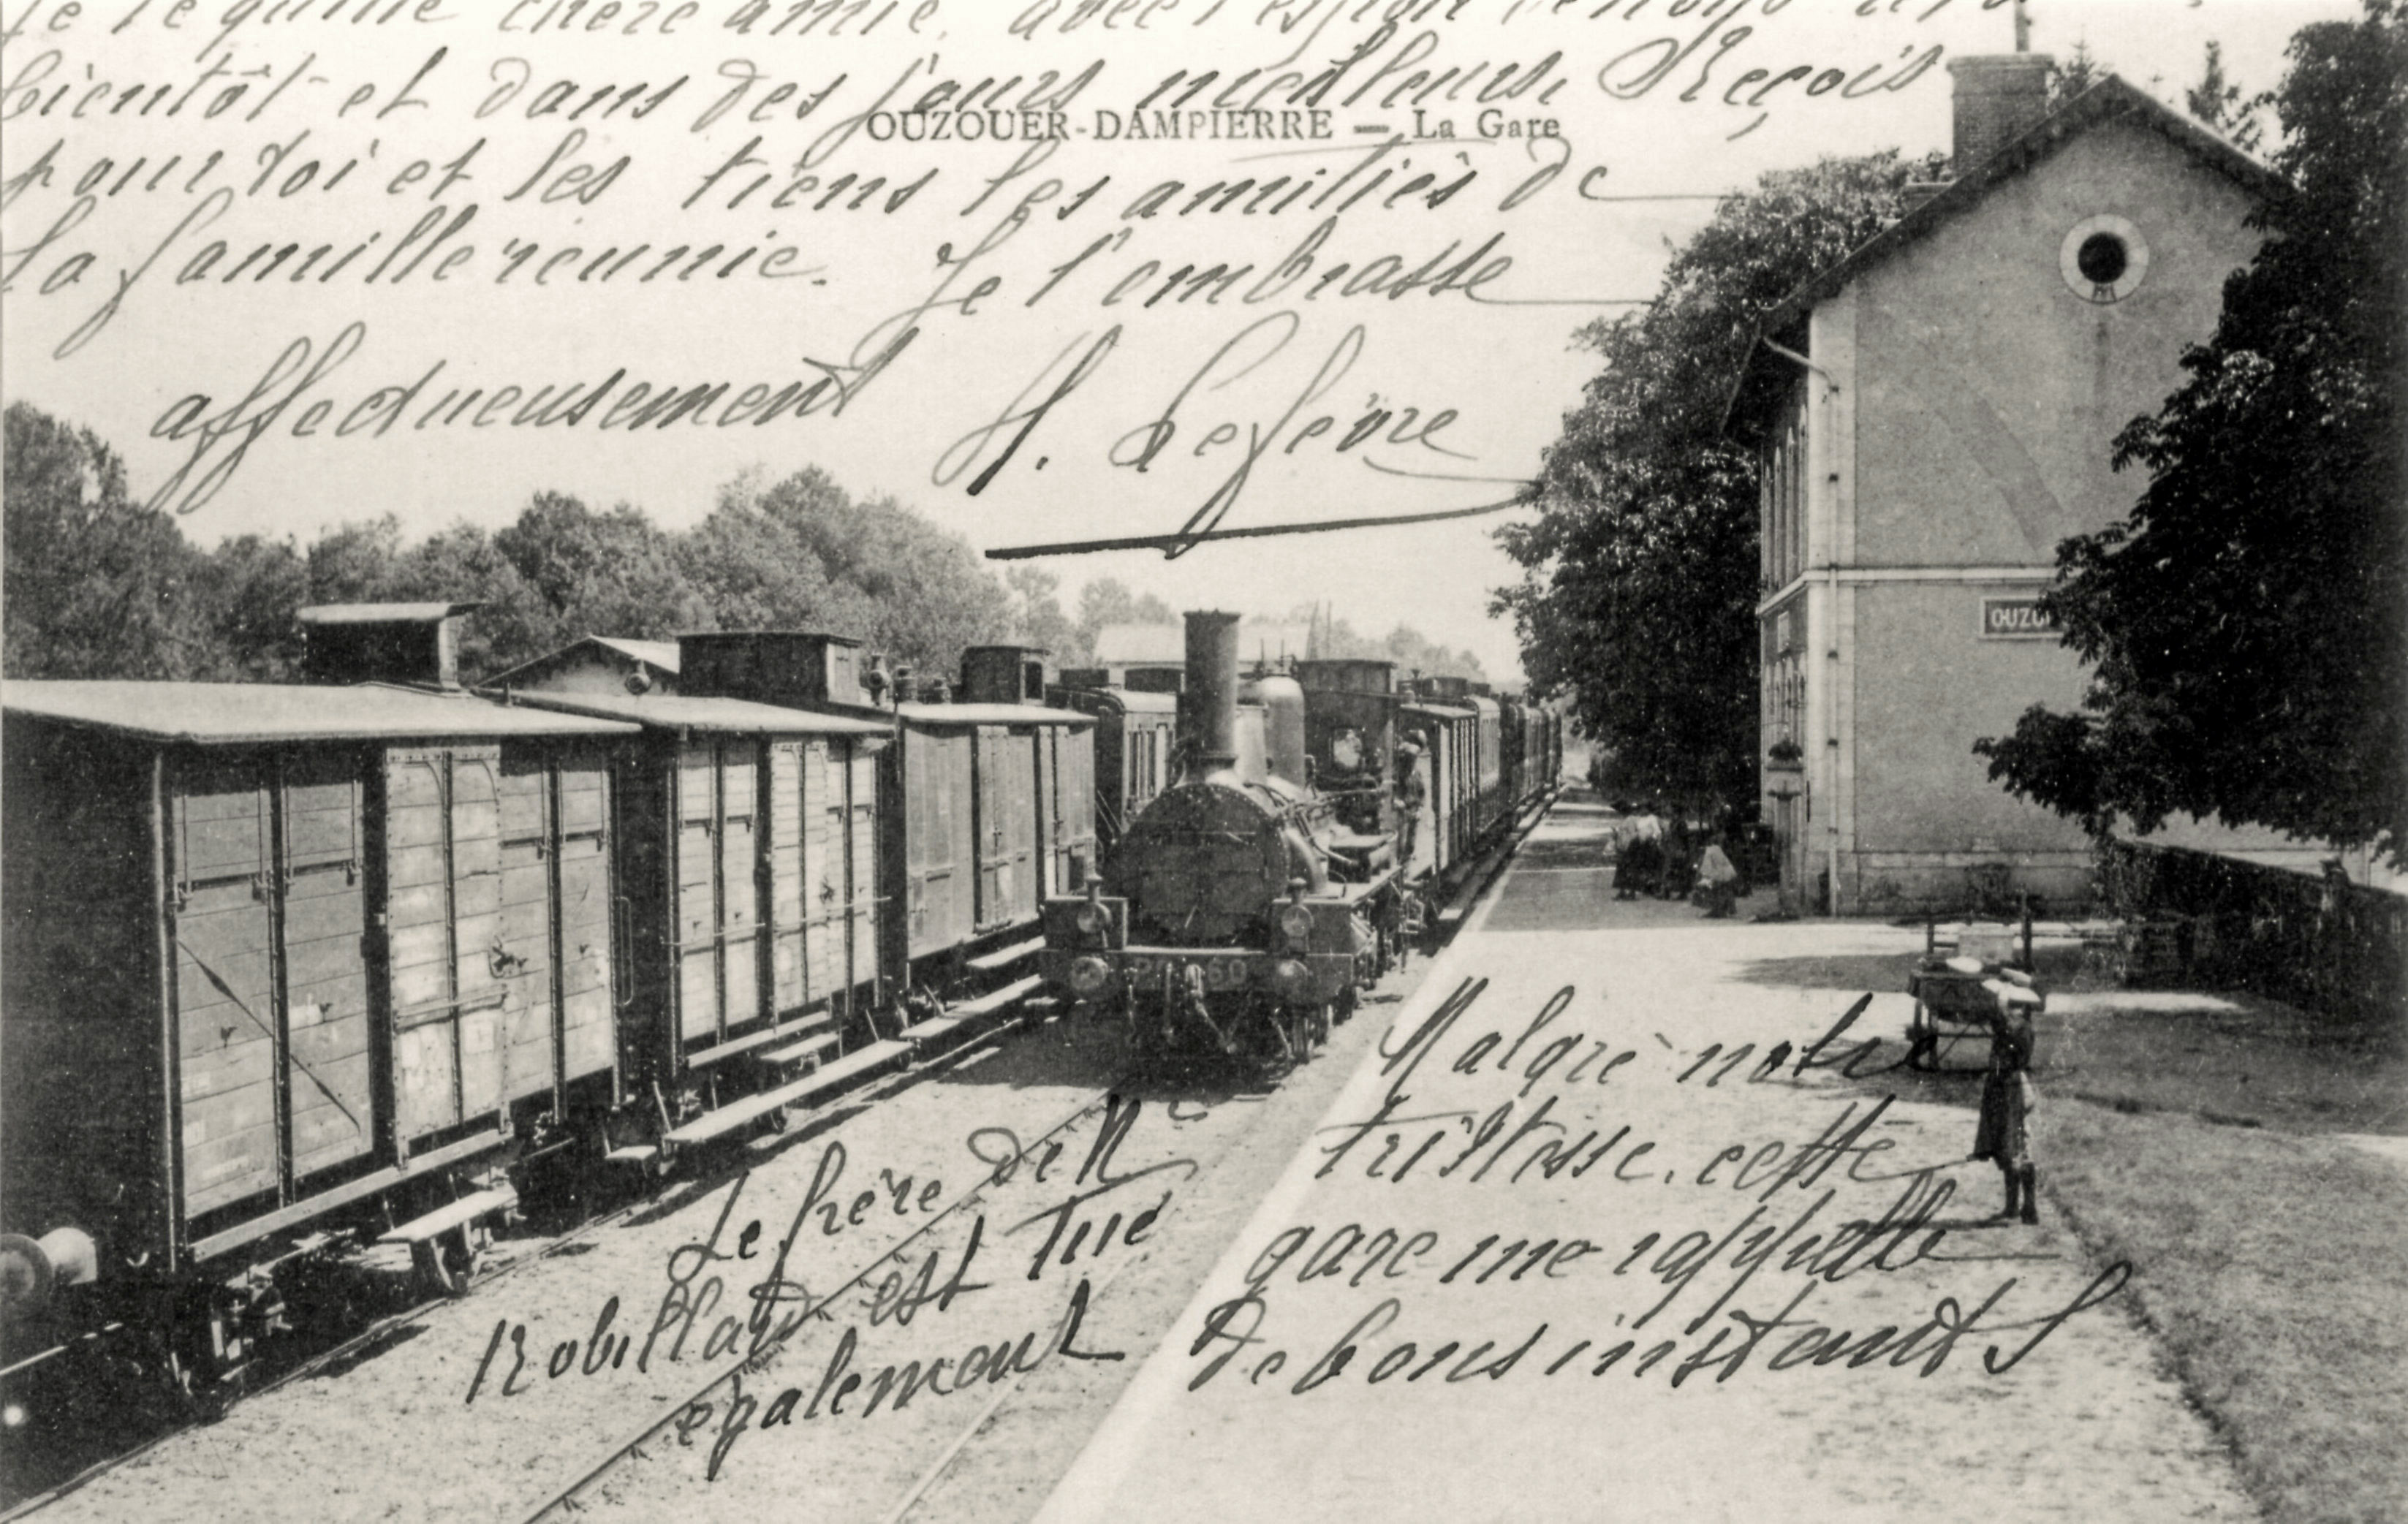 Je te quitte chère amie, avec l'espoir
bientôt et dans des jours meilleurs. Reçois
OUZOUER-DAMPIERRE — La Gare
pour toi et les tiens les amitiés de
la famille réunie. Je t'embrasse
affectueusement
H. Lefèvre
OUZO
60
Malgré notre
tristesse, cette
gare me rappelle
de bons instants
Le frère de Mr
Robillard est tué
également